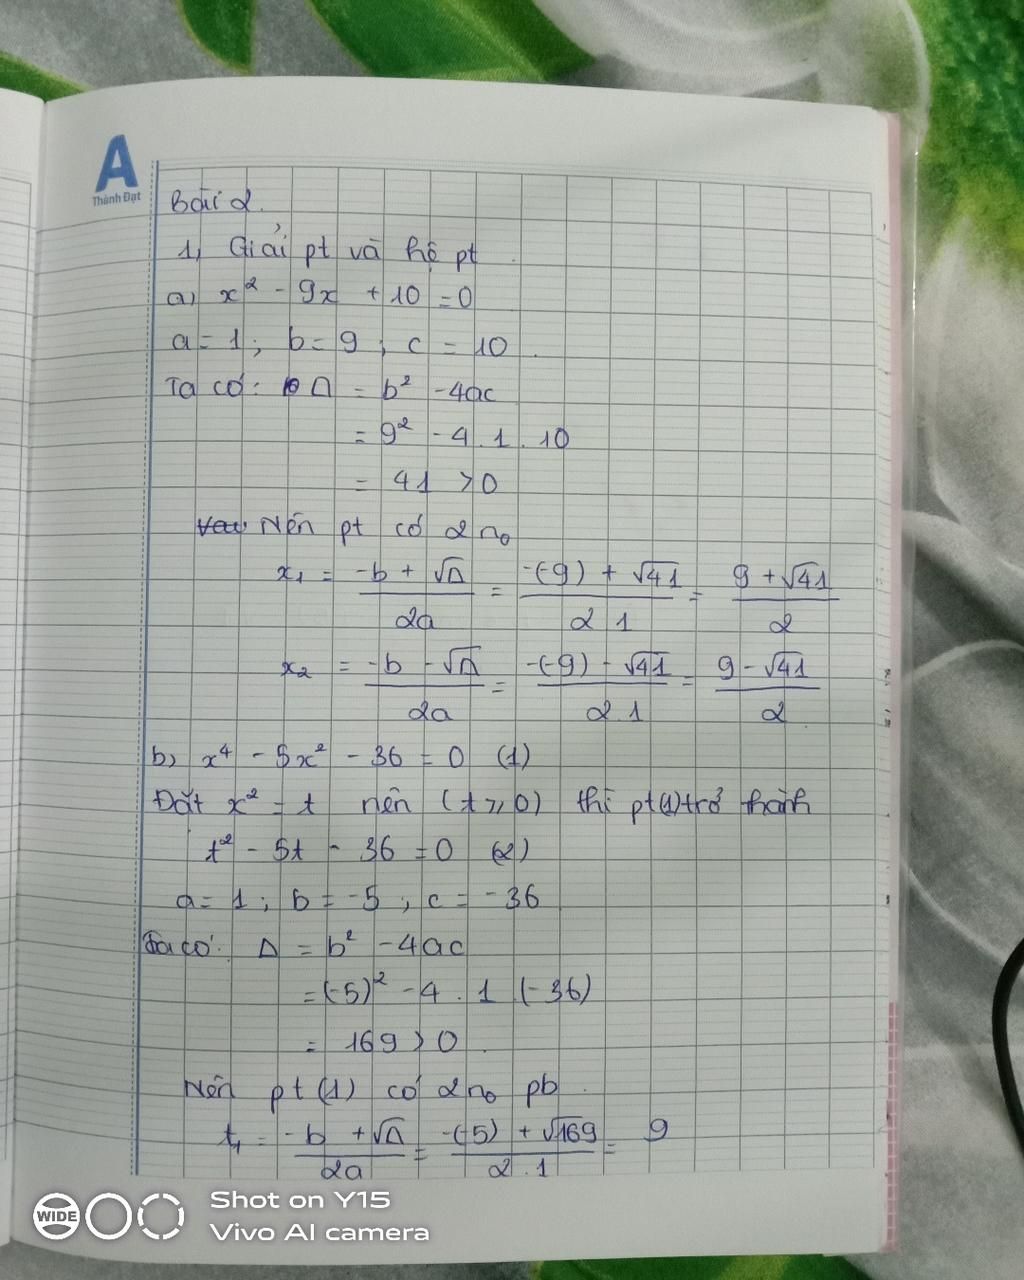 A
Thành Đạt
Bài 2.
1, Giải pt và hệ pt
a, x² - 9x + 10 = 0
a = 1; b = 9; c = 10.
Ta có: Δ = b² - 4ac
= 9² - 4.1.10
= 41 > 0
Nên pt có 2 n₀
x₁ = (-b + √Δ)/2a = (-(-9) + √41)/2 1 = (9 + √41)/2
x₂ = (-b - √Δ)/2a = (-(-9) - √41)/2.1 = (9 - √41)/2
b, x⁴ - 5x² - 36 = 0 (1)
Đặt x² = t nên (t ≥ 0) thì pt(1) trở thành
t² - 5t - 36 = 0 (2)
a = 1; b = -5; c = -36
Ta có: Δ = b² - 4ac
= (-5)² - 4.1 (-36)
= 169 > 0.
Nên pt (1) có 2 n₀ pb.
t₁ = (-b + √Δ)/2a = (-(-5) + √169)/2.1 = 9
WIDE
Shot on Y15
Vivo AI camera